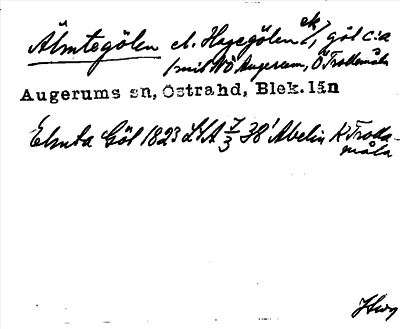 Älmtegölen el. Hagegölen ek/, göl c:a
1 mil NÖ Augerum, Ö Trollemåla
Augerums sn, Östrahd, Blek.län
Elmta Göl 1823 LSA 7/3 38' Abelin K Trolla-
måla